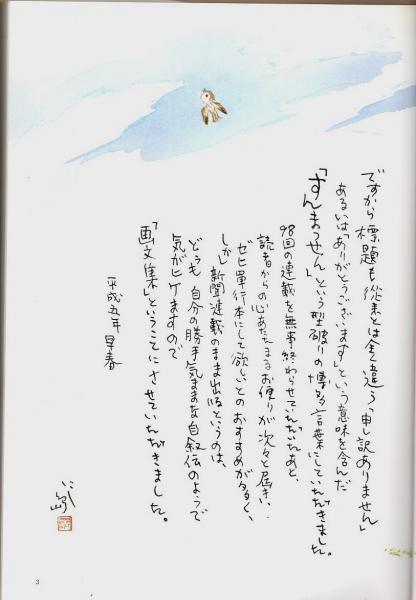 ですから標題も従来とは全く違う「申し訳ありません」
あるいは「ありがとうございます」という意味を含んだ
「すんまっせん」という型破りの博多言葉にしていただきました。
98回の連載を無事終わらせていただいたあと、
読者からの心あたたまるお便りが次々と届き、
ゼヒ単行本にして欲しいとのおすすめが多く、
しかし新聞連載のまま出版というのは、
どうも自分の勝手気ままな自叙伝のようで
気がヒケますので
「画文集」ということにさせていただきました。
平成五年 早春
3